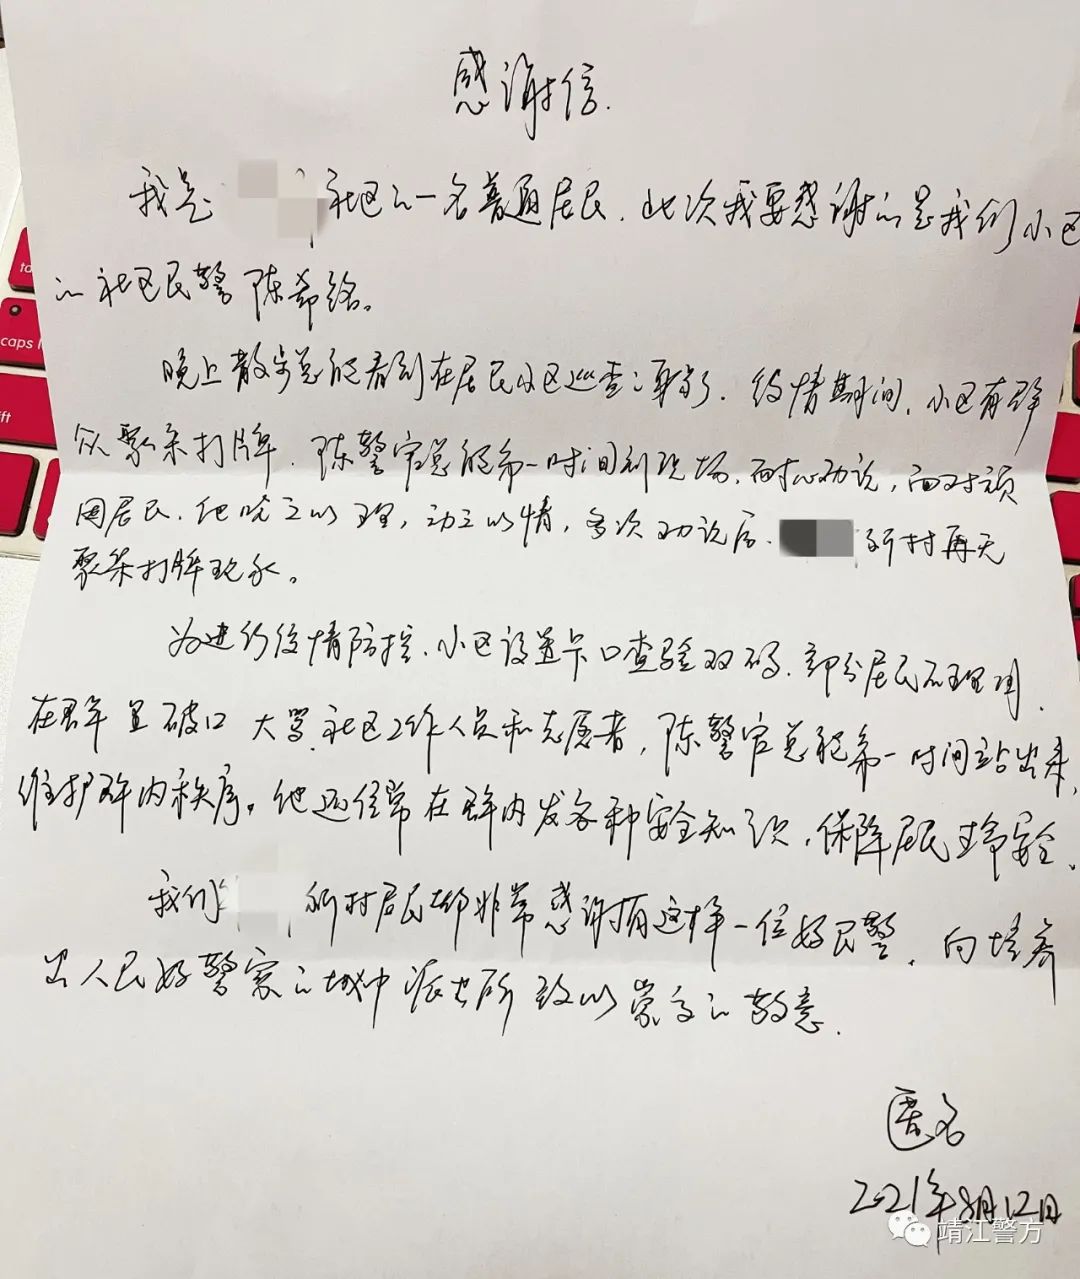 感谢信.
我是 社区的一名普通居民.此次我要感谢的是我们小区
的社区民警陈希
晚上散步总能看到在居民小区巡查的身影.疫情期间.小区有群
众聚众打牌.陈警官总能第一时间到现场.耐心劝说,面对顽
固居民.他晓之以理,动之以情,多次劝说后. 新村再无
聚众打牌现象。
为进行疫情防控.小区设置卡口查验双码.部分居民不理
在群里破口大骂社区工作人员和志愿者,陈警官总能第一时间站出来,
维护群内秩序。他还经常在群内发各种安全知识,保障居民生命安全.
我们 新村居民都非常感谢有这样一位好民警.向培养
出人民好警察的城中派出所致以崇高的敬意.
匿名
2021年8月12日
靖江警方
tab
caps l
shift